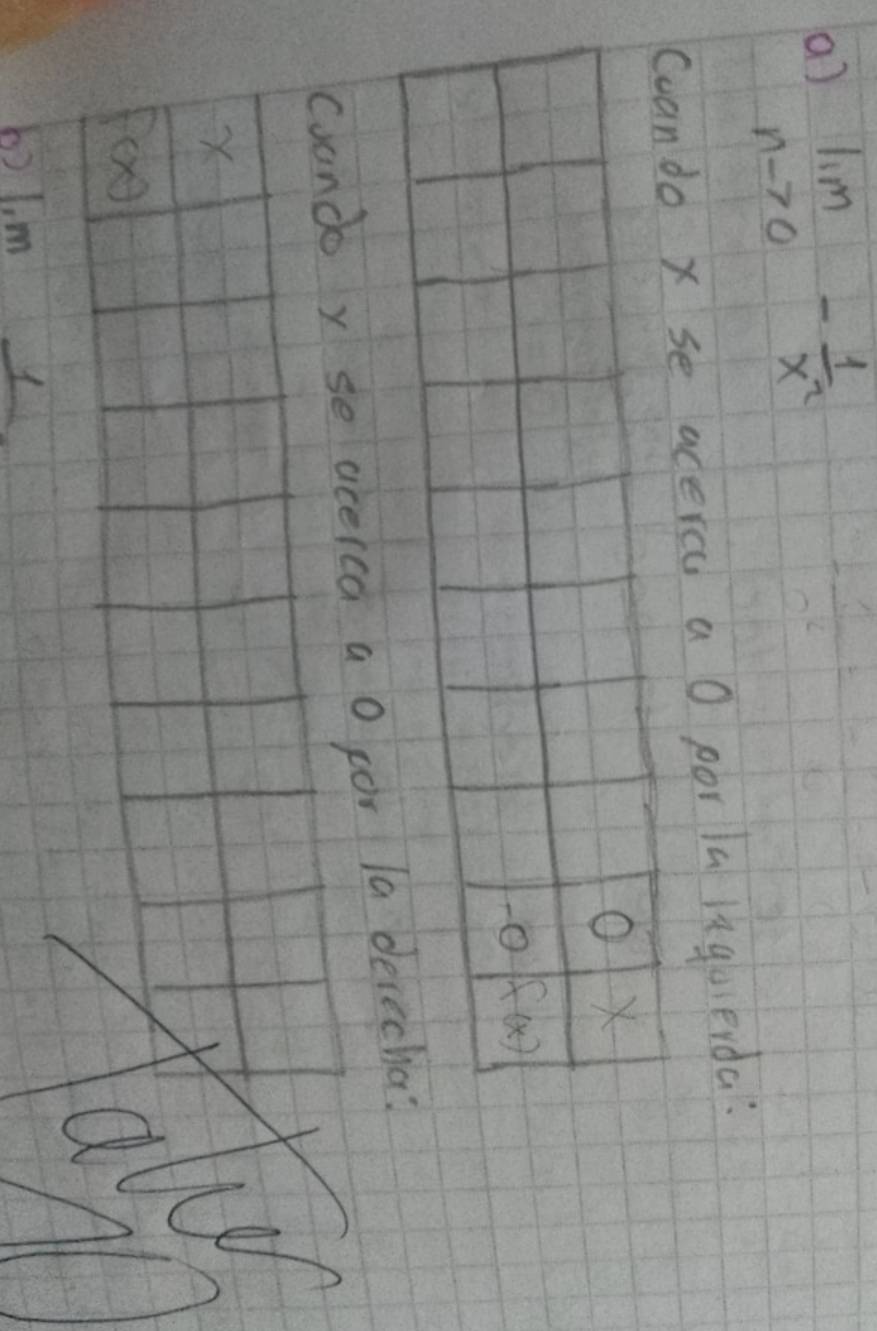 a) lim - 1/x²
n→0
Cuando x se acerca a 0 por la izquierda:
0 x
-0 f(x)
Cuando y se acerca a 0 por la derecha:
x
f(x)
lim 1
10